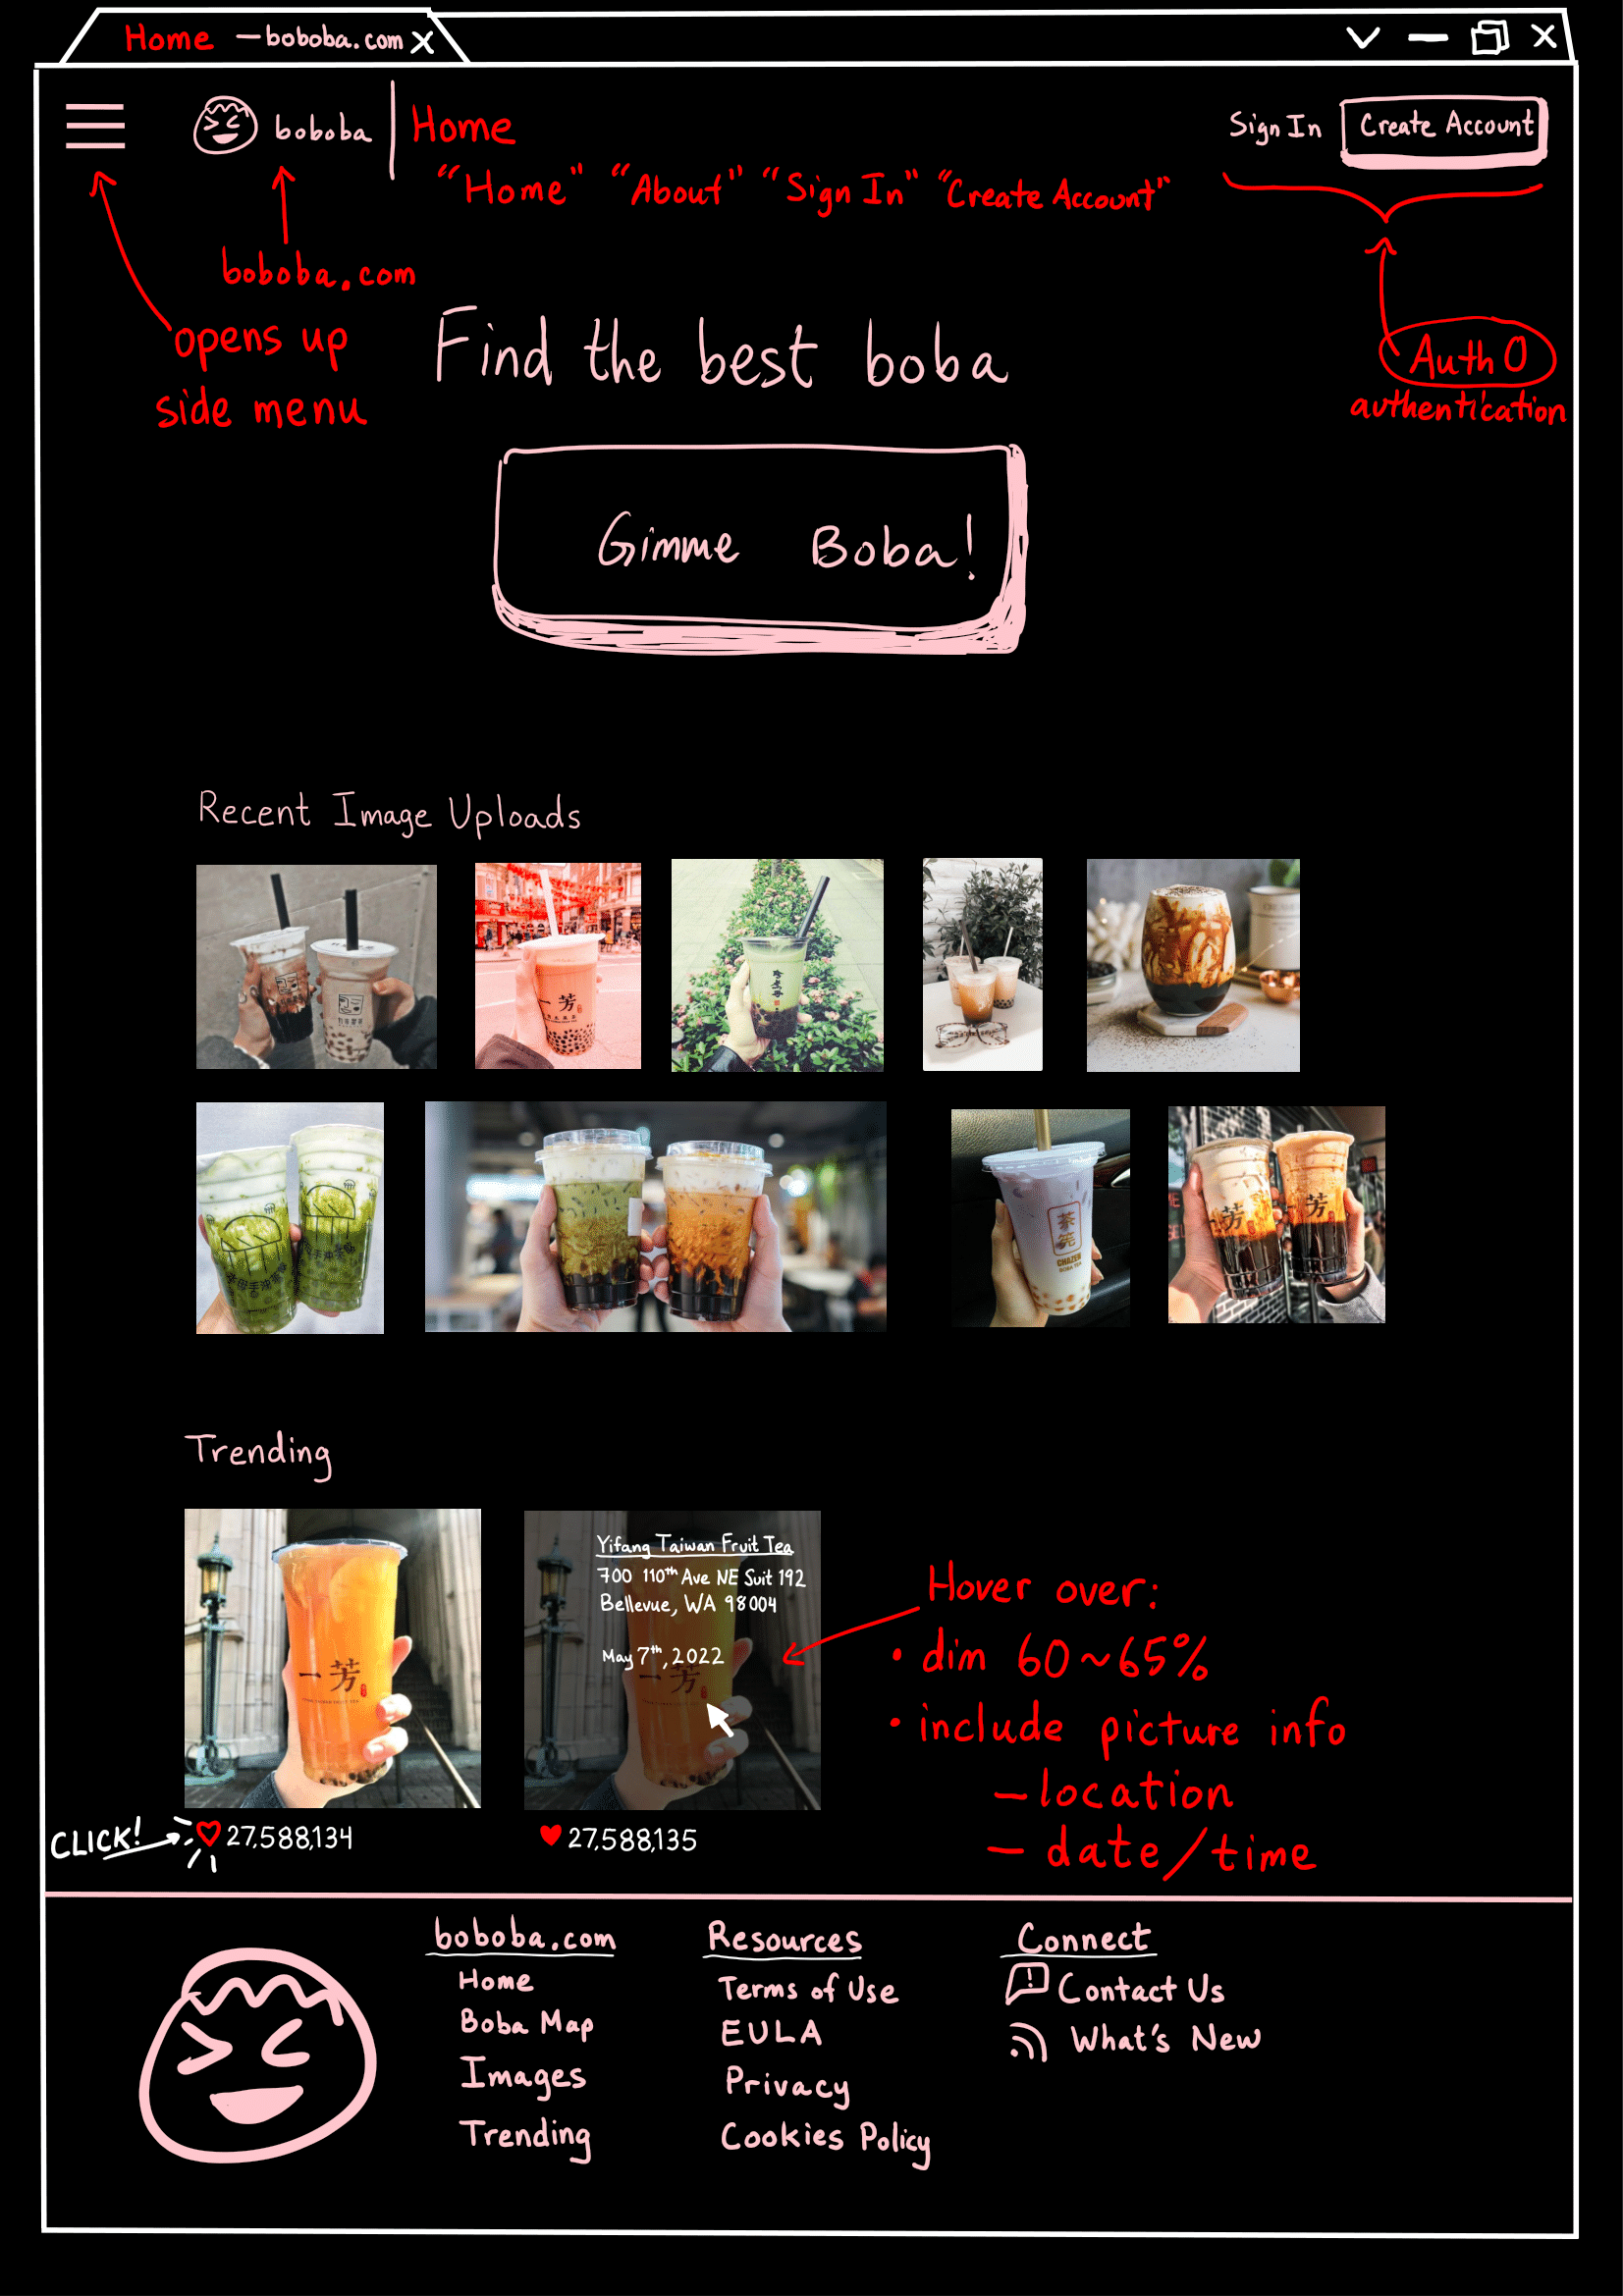 Home — boboba.com X
boboba | Home
Sign In
Create Account
"Home" "About" "Sign In" "Create Account"
boboba.com
opens up
side menu
Auth0
authentication
Find the best boba
Gimme Boba!
Recent Image Uploads
一芳
一芳
一芳
茶
CHAZEN
BOBA TEA
Trending
一芳
Yifang Taiwan Fruit Tea
700 110th Ave NE Suit 192
Bellevue, WA 98004
May 7th, 2022
一芳
Hover over:
• dim 60~65%
• include picture info
— location
— date/time
CLICK!
27,588,134
27,588,135
boboba.com
Home
Boba Map
Images
Trending
Resources
Terms of Use
EULA
Privacy
Cookies Policy
Connect
Contact Us
What's New